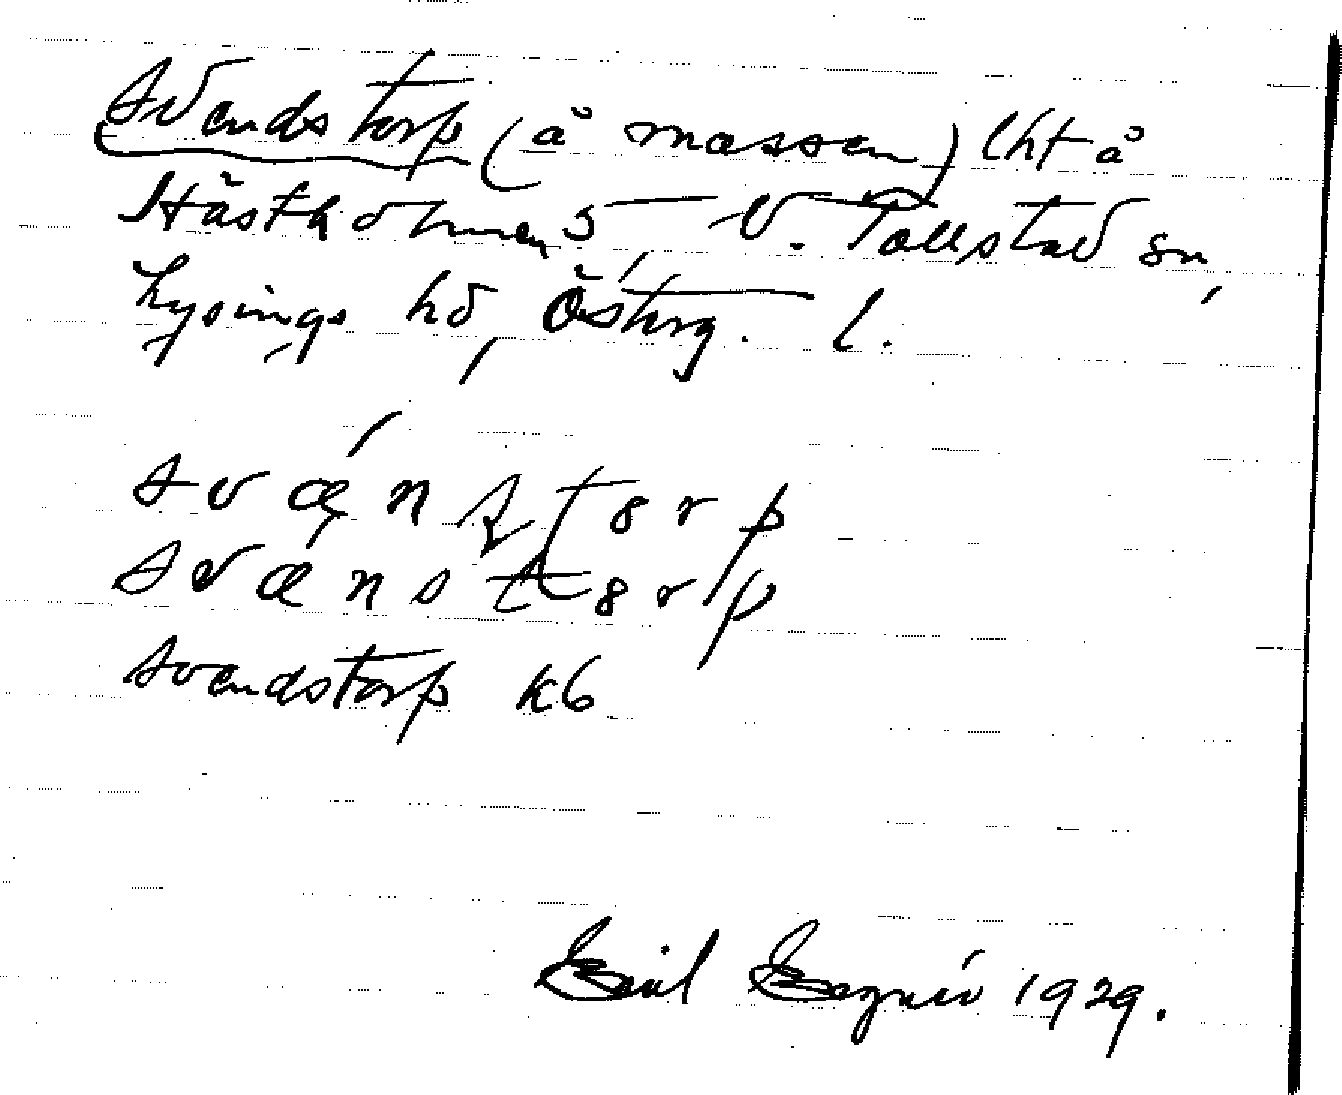 Svendstorp (å mossen) lht å
Hästholmen 5 V. Tollstad sn,
Lysings hd, Österg. l.
svænstȯrp
svænstȯrp
Svendstorp kb
Emil 1929.